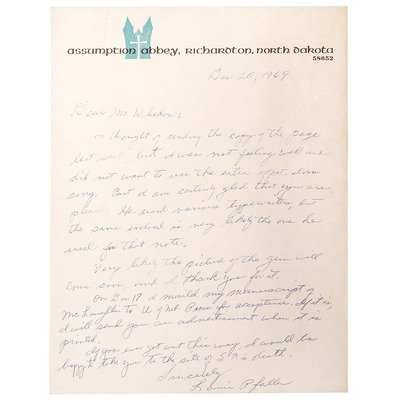 assumption abbey, Richardton, North Dakota
58652
Dec 20, 1969
Dear Mr. Wheelon:
I thought of sending the copy of the page
last week, but I was not feeling well and
did not want to use the either ofput. I am
sorry. But I am certainly glad that you are
pleased. He used various typewriters, but
the same indeed is very likely the one he
used for that note.
Very likely the picture of the gun will
come soon, and I thank you for it.
On Dec 18 I mailed my manuscript of
McLaughlin to U of Neb Press for acceptance. If it is in,
I will send you an advertisement when it is
printed.
If you ever get out this way, I would be
happy to take you to the site of S B's death.
Sincerely
Louis Pfaller